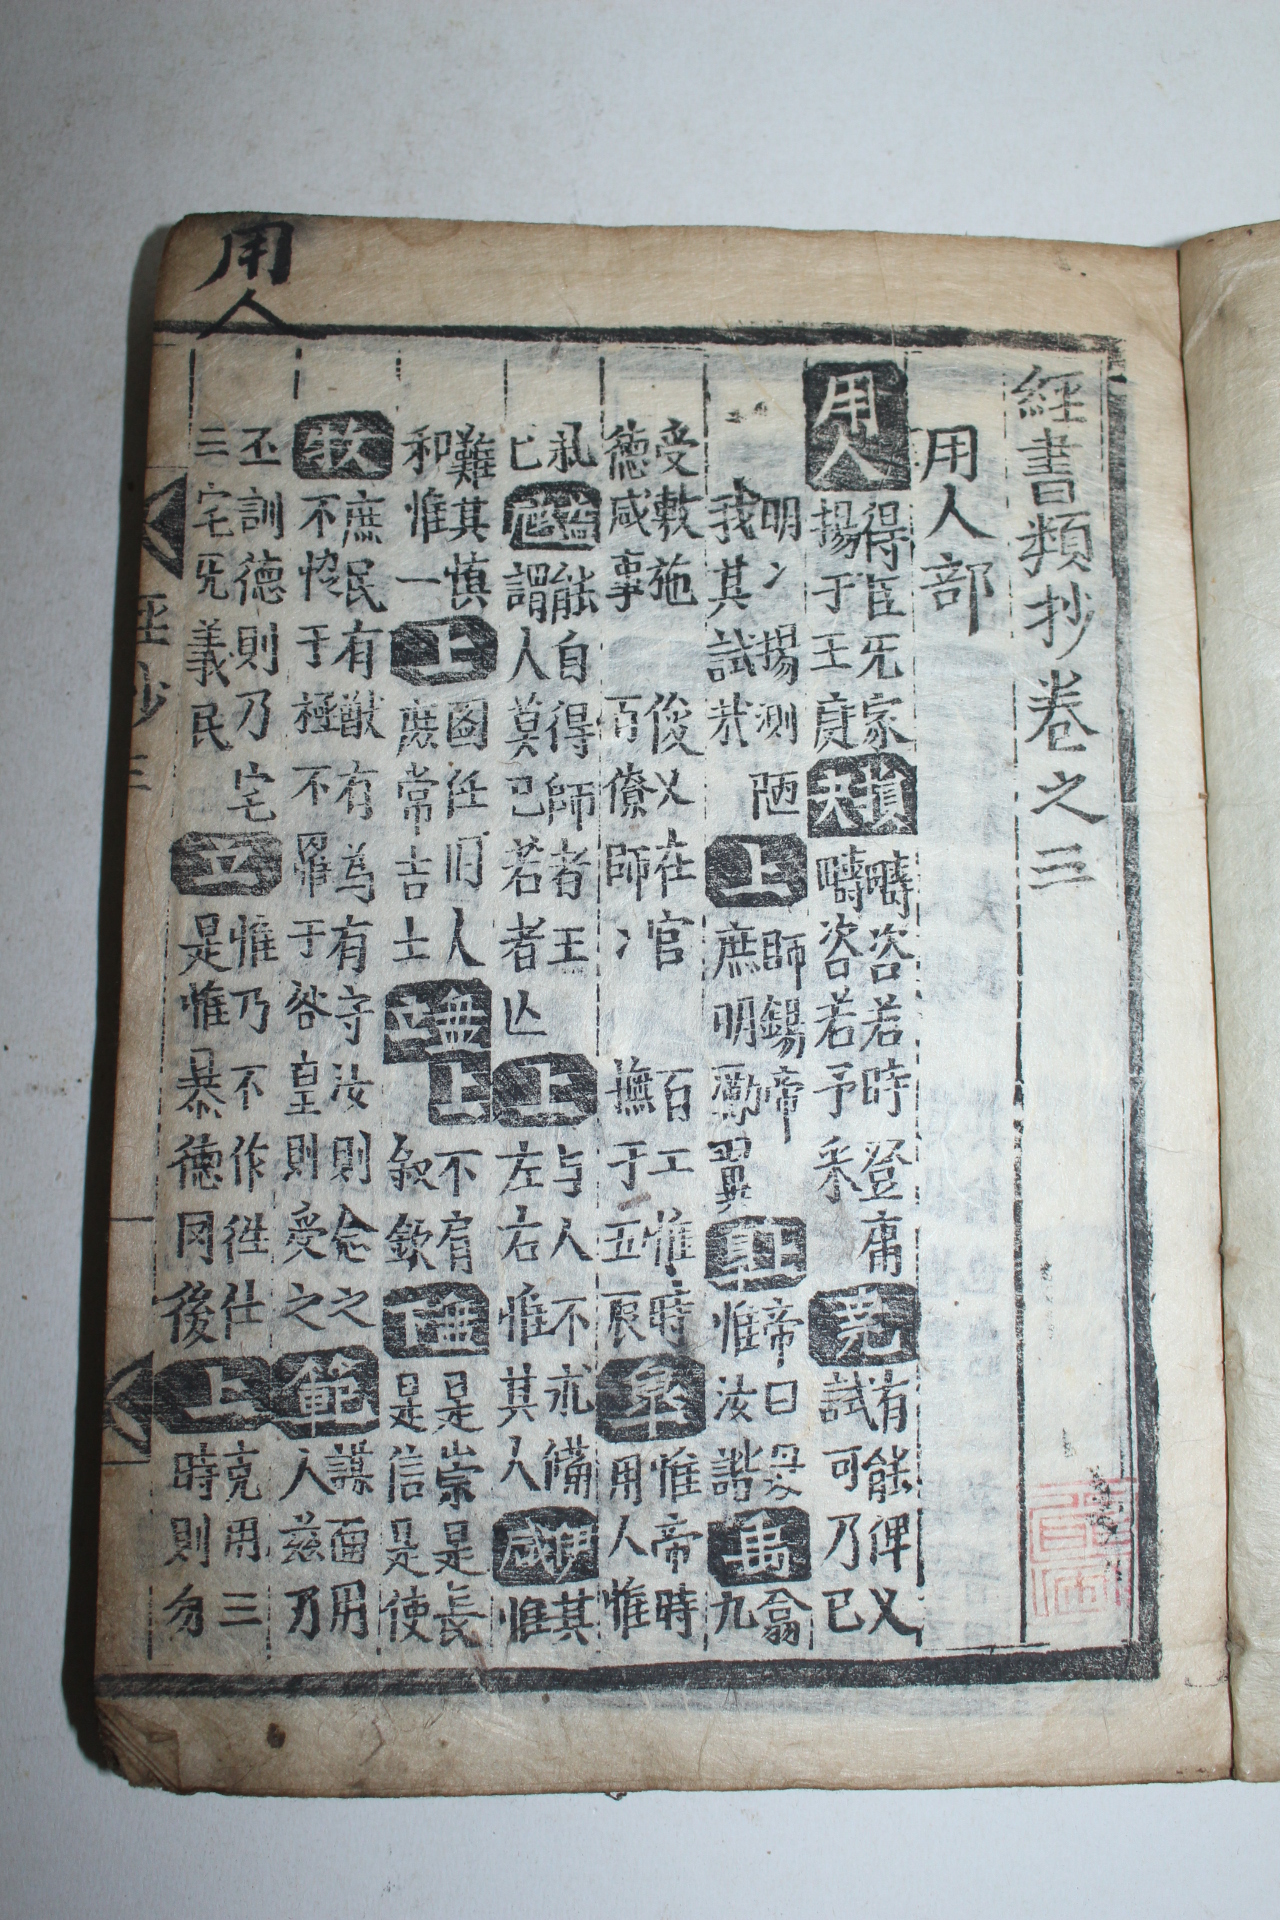 用人
經書類抄卷之三
用人部
用人
得臣旡家
揚于王庭
損
夬
疇咨若時登庸
疇咨若予采
堯
有能俾乂
試可乃已
明〻揚測陋
我其試㢤
上
師錫帝
庶明勵翼
帝曰毋
惟汝諧
禹
翕
九
受敷施
德咸事
俊乂在官
百僚師〻
百工惟時
撫于五辰
皐
惟帝時
用人惟
已
益
虺
能自得師者王
謂人莫已若者亾
上
与人不求備
左右惟其人
咸
其
惟
難其慎
和惟一
上
圖任旧人
庶常吉士
無
立
上
不肩
敍欽
無
下
是崇是長
是信是使
牧
庶民有猷有為有守汝則念之
不恊于極不罹于咎皇則受之
範
謀面用
人兹乃
丕訓德則乃宅
三宅旡義民
立
惟乃不作徃仕
是惟暴德罔後
上
克用三
時則勿
經抄三